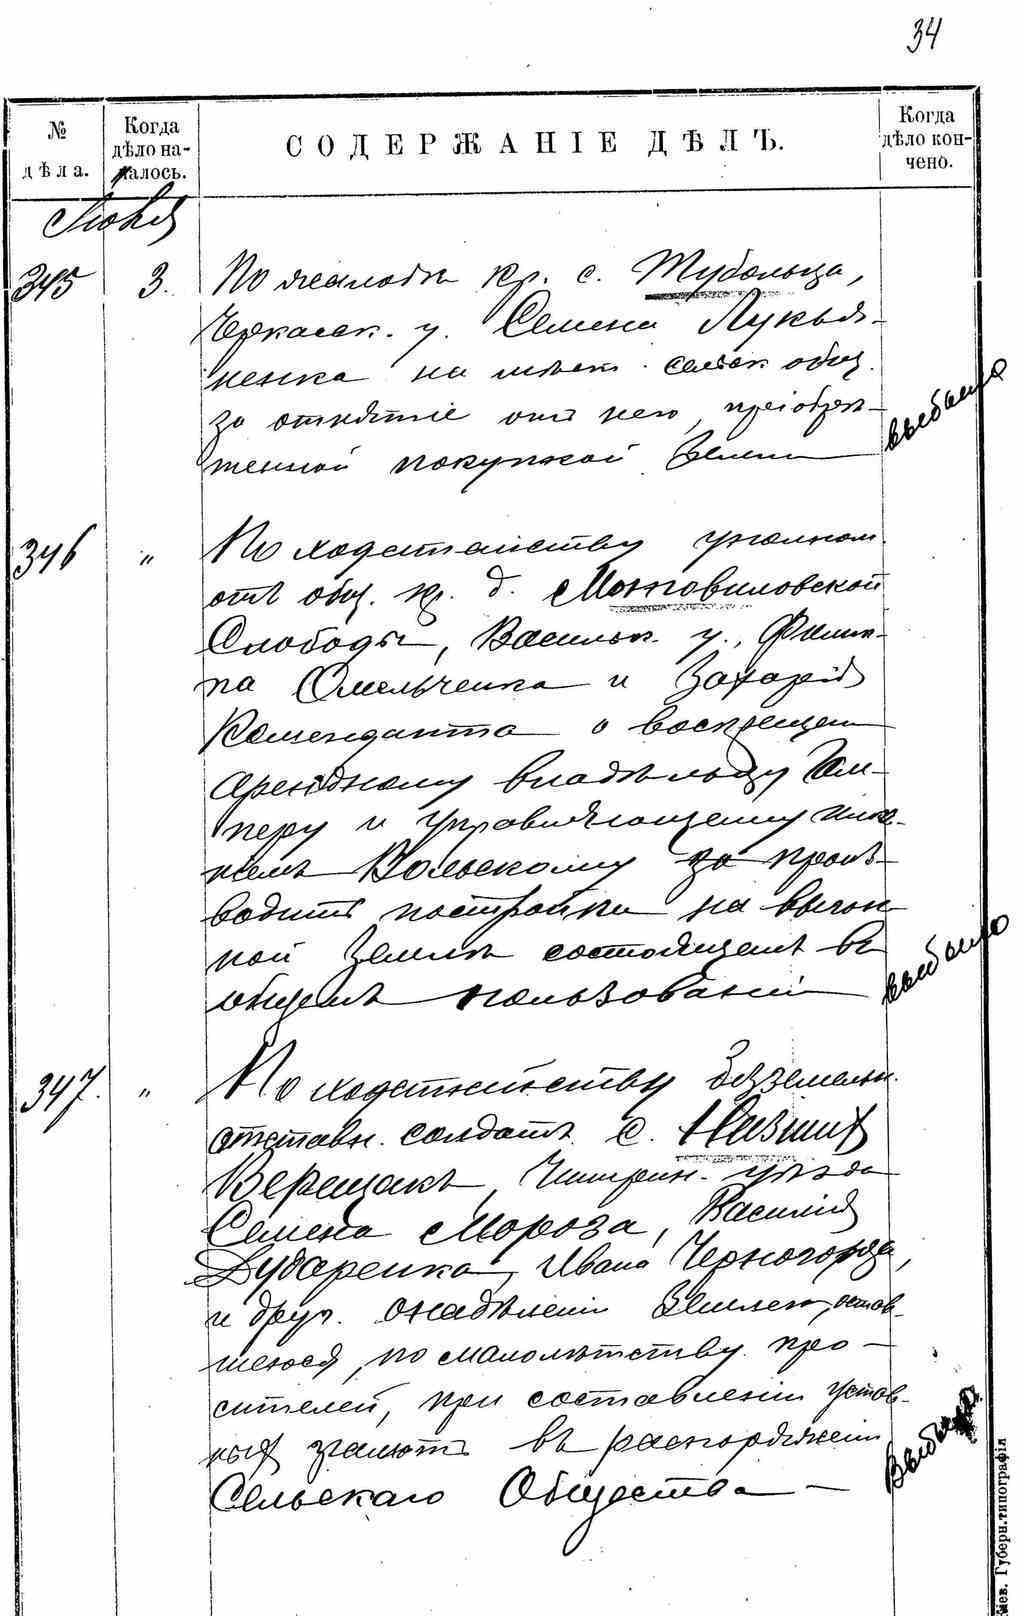 34
№ дѣла.
Когда дѣло началось.
СОДЕРЖАНІЕ ДѢЛЪ.
Когда дѣло кончено.
345 3. По жалобѣ кр. с.
Черкасск. у. Семена Лукья-
ненка на мѣст. сельск общ.
за отнятіе отъ него, пріобрѣ-
тенной покупкой земли
выбыло
346 " По ходатайству уполном.
отъ общ. кр. д. Мотовиловской
Слободы, Васильк. у., Филип-
па Омельченка и Захарія
Коменданта о воспрещеніи
арендному владѣльцу
и управляющему имѣ-
ніемъ Вольскому произ-
водить постройки на выгон-
ной землѣ состоящемъ въ
общемъ пользованіи
выбыло
347. " По ходатайству безземельн.
отставн. солдатъ с. Низшихъ
Верещакъ, Чигирин. уѣзда
Семена Мороза, Василія
Дударенка, Ивана Черногорца,
и друг. о надѣленіи землею, остав-
шеюся, по малолѣтству про-
сителей, при составленіи устав-
ныхъ грамотъ въ распоряженіи
Сельскаго Общества
Выбыло
Кіев. Губерн. типографія